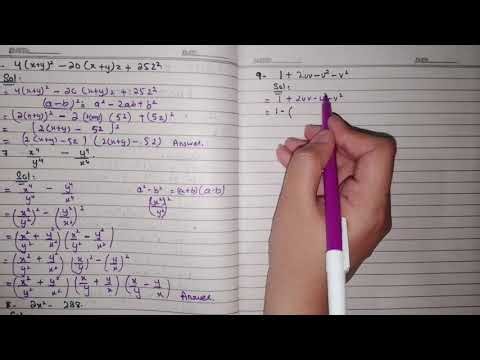 4(x+y)² - 20(x+y)z + 25z²
Sol:
= 4(x+y)² - 20(x+y)z + 25z²
(a-b)² = a² - 2ab + b²
= (2(x+y))² - 2 (5z) + (5z)²
= (2(x+y) - 5z)²
= (2(x+y) - 5z) (2(x+y) - 5z) Answer.
7 x⁴/y⁴ - y⁴/x⁴
Sol:
= x⁴/y⁴ - y⁴/x⁴ a²-b² = (a+b)(a-b)
= (x²/y²)² - (y²/x²)² (x²/y²)²
= (x²/y² + y²/x²) (x²/y² - y²/x²)
= (x²/y² + y²/x²) (x/y)² - (y/x)²
= (x²/y² + y²/x²) (x/y + y/x) (x/y - y/x) Answer
8- 2x² - 288.
9- 1 + 2uv - u² - v²
Sol:
= 1 + 2uv - u² - v²
= 1 - (